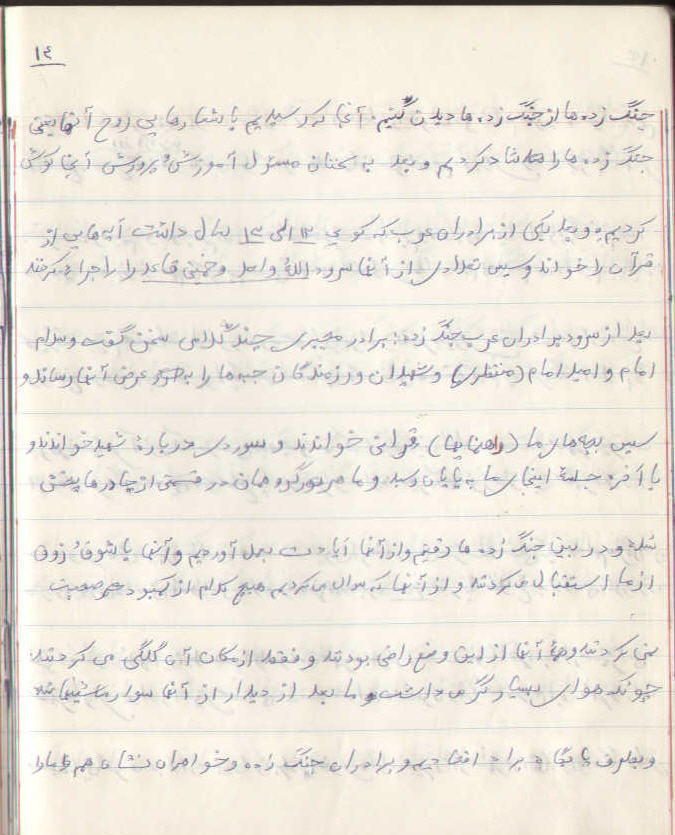 ١٤
جنگ زده ها از جنگ زده ها دیدن کنیم. آنجا که رسیدیم با شعارهایی روح آنها یعنی
جنگ زده ها را شاد کردیم و بعد به سخنان مسئول آموزش و پرورش آنجا گوش
کردیم و بعد یکی از برادران عرب که کویی ١٢ الی ١٣ سال داشت آیه هایی از
قرآن را خواند و سپس تعدادی از آنها سرود الله واحد و خمینی قاعد را اجراء کردند
بعد از سرود برادران عرب جنگ زده، برادر چند کلامی سخن گفت و سلام
امام و امید امام (منتظری) و شهیدان و رزمندگان جبهه ها را به عرض آنها رساند و
سپس بچه های ما (راهنماییها) قرآنی خواندند و سرودی درباره شهید خواندند و
با آخره جلسه اینجای ما به پایان رسید و ما هر گروهمان در قسمتی از چادرها پخش
شده و در بین جنگ زده ها رفتیم و از آنها عیادت بعمل آوردیم و آنها با شوق و ذوق
از ما استقبال می کردند و از آنها که سوال می کردیم هیچ کدام از کمبود صحبت
نمی کردند و همه آنها از این وضع راضی بودند و فقط از مکان آن گلگی می کردند
چونکه هوای بسیار گرمی داشت و ما بعد از دیدار از آنها سوار ماشینها شده
و بطرف براه افتادیم و برادران جنگ زده و خواهران نشان هم ما را